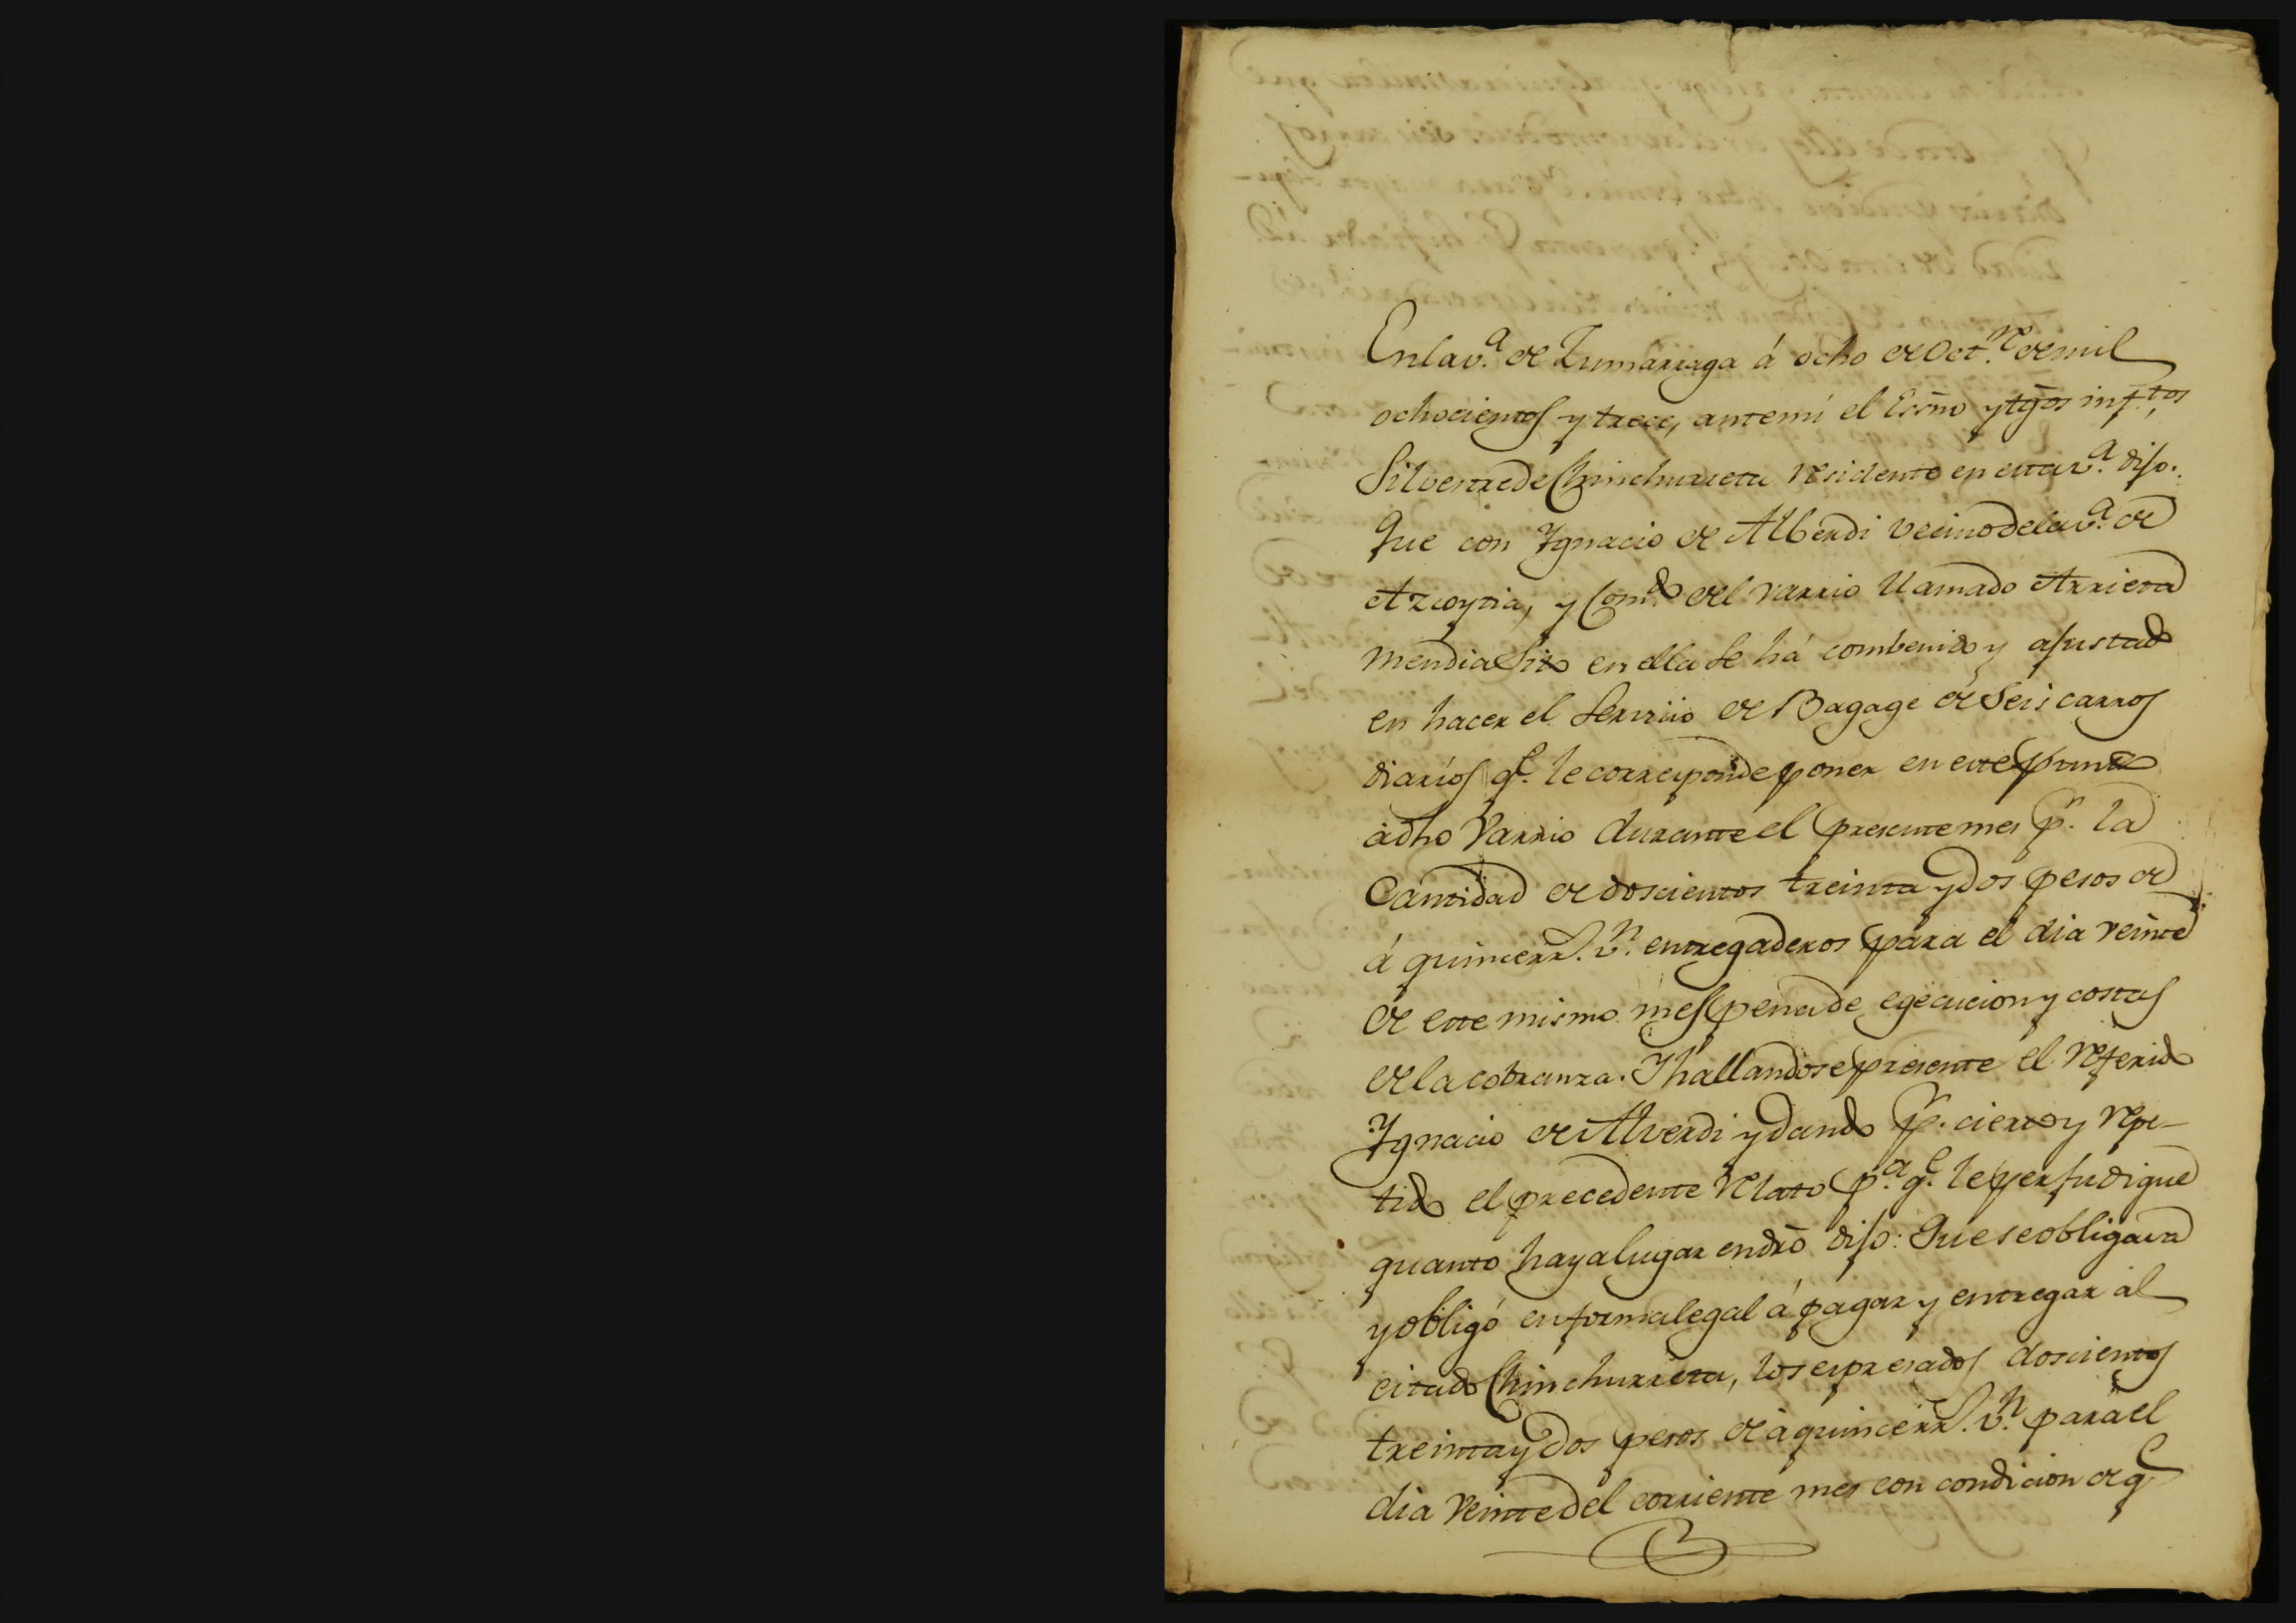 En la v.ª de Zumarraga á ocho de Oct.re de mil
ochocientos y trece, ante mi el Essno y tgos inf.tos
Silvestre de Chinchurreta residente en esta v.ª dijo:
Que con Ygnacio de Alberdi vecino de la v.ª de
Azcoytia, y Com.do del varrio llamado Arriera
mendia sito en ella se há combenido y ajustado
en hacer el servicio de Bagage de seis carros
diarios q.e le corresponde poner en este punto
à dho varrio durante el presente mes p.r la
Cantidad de doscientos treinta y dos pesos de
á quince rr.s v.n entregaderos para el dia veinte
de este mismo mes pena de egecucion y costas
de la cobranza. Y hallandose presente el referido
Ygnacio de Alverdi y dando p.r cierto y repe-
tido el precedente relato p.ª q.e le perjudique
quanto haya lugar en dro dijo: Que se obligava
y obligó en forma legal á pagar y entregar al
citado Chinchurreta, los espresados doscientos
treinta y dos pesos de à quince rr.s v.n para el
dia veinte del corriente mes con condicion de q.e